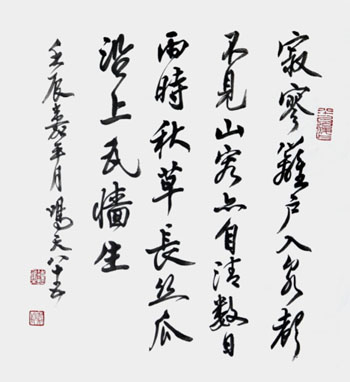 寂寥籬戶入泉聲
不見山容亦自清數日
雨時秋草長絲瓜
沿上瓦墻生
壬辰嘉平月鳴天八十五